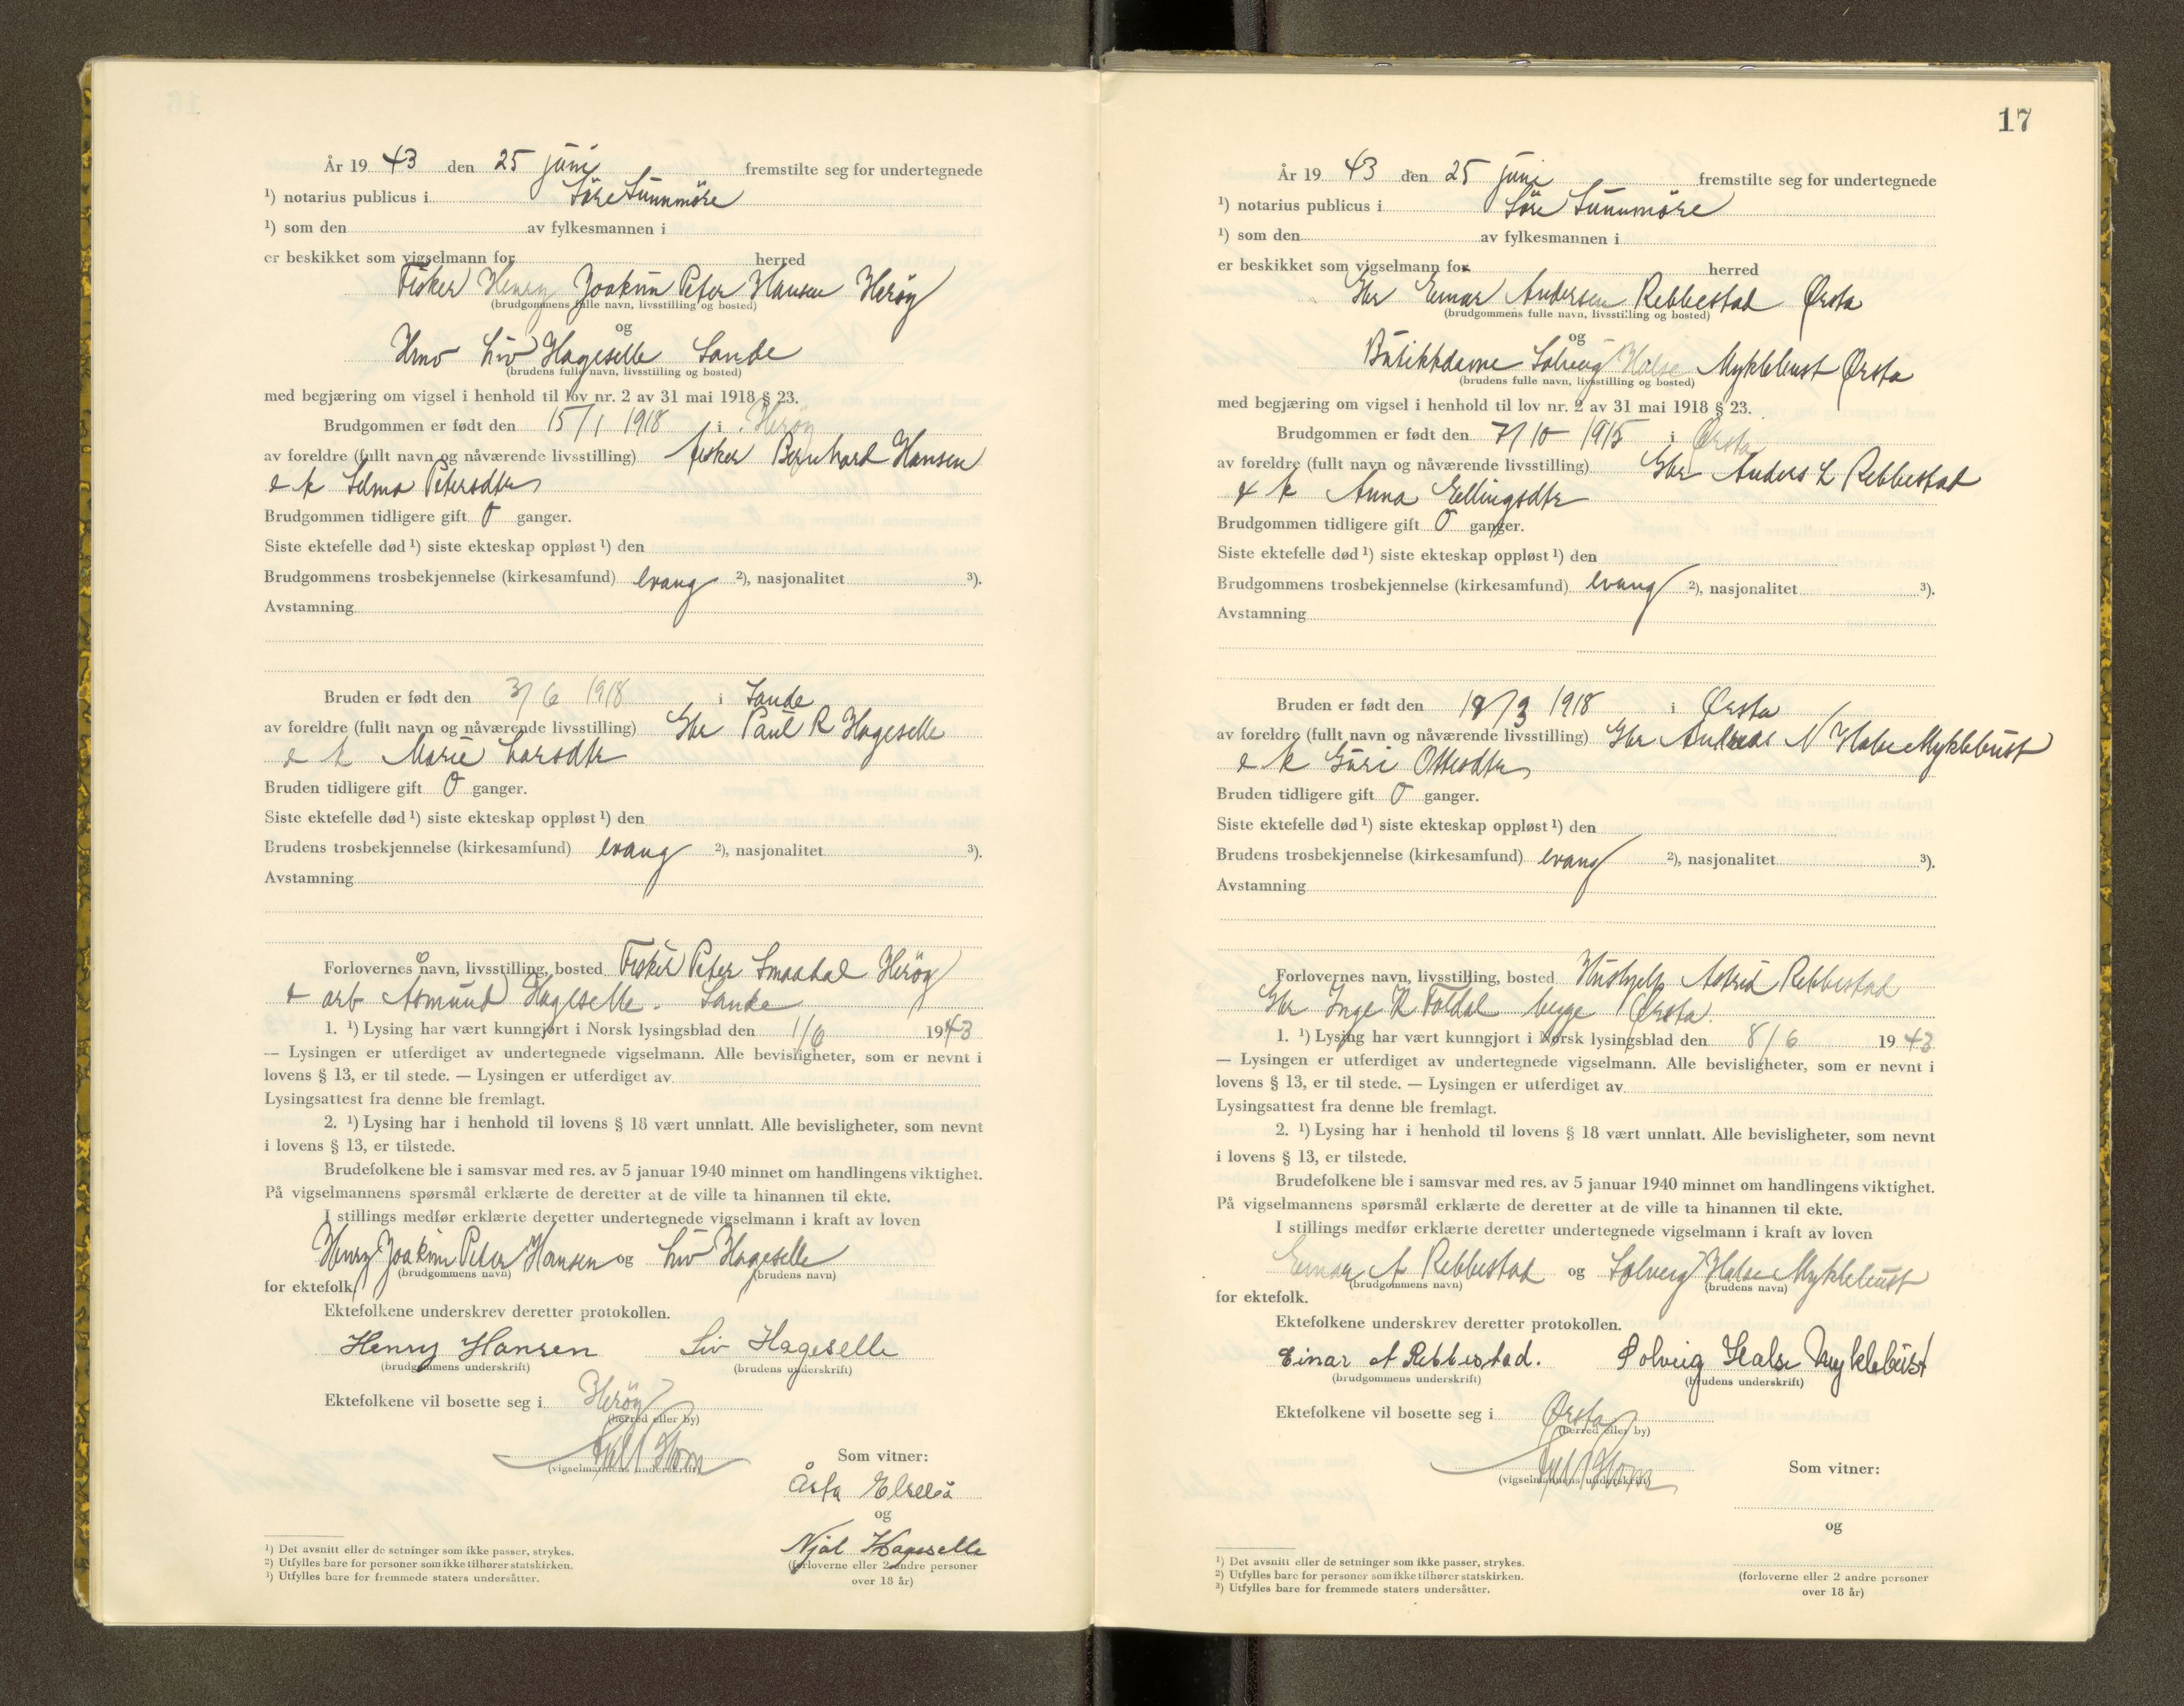 År 19 43 den 25 juni fremstilte seg for undertegnede
¹) notarius publicus i Söre Sunnmöre
¹) som den av fylkesmannen i
er beskikket som vigselmann for herred
Fisker Henry Joakim Peter Hansen Heröy
(brudgommens fulle navn, livsstilling og bosted)
og
Liv Hageselle Sande
(brudens fulle navn, livsstilling og bosted)
med begjæring om vigsel i henhold til lov nr. 2 av 31 mai 1918 § 23.
Brudgommen er født den 15/1 1918 i Heröy
av foreldre (fullt navn og nåværende livsstilling) fisker Bernhard Hansen
& k Selma Petersdtr
Brudgommen tidligere gift 0 ganger.
Siste ektefelle død ¹) siste ekteskap oppløst ¹) den
Brudgommens trosbekjennelse (kirkesamfund) evang ²), nasjonalitet ³).
Avstamning
Bruden er født den 3/6 1918 i Sande
av foreldre (fullt navn og nåværende livsstilling) Gbr Paul R Hageselle
& k Marie Larsdtr
Bruden tidligere gift 0 ganger.
Siste ektefelle død ¹) siste ekteskap oppløst ¹) den
Brudens trosbekjennelse (kirkesamfund) evang ²), nasjonalitet ³).
Avstamning
Forlovernes navn, livsstilling, bosted Fisker Peter Smaadal Heröy
& arb Asmund Hageselle. Sande
1. ¹) Lysing har vært kunngjort i Norsk lysingsblad den 1/6 1943
— Lysingen er utferdiget av undertegnede vigselmann. Alle bevisligheter, som er nevnt i
lovens § 13, er til stede. — Lysingen er utferdiget av
Lysingsattest fra denne ble fremlagt.
2. ¹) Lysing har i henhold til lovens § 18 vært unnlatt. Alle bevisligheter, som nevnt
i lovens § 13, er tilstede.
Brudefolkene ble i samsvar med res. av 5 januar 1940 minnet om handlingens viktighet.
På vigselmannens spørsmål erklærte de deretter at de ville ta hinannen til ekte.
I stillings medfør erklærte deretter undertegnede vigselmann i kraft av loven
Henry Joakim Peter Hansen og Liv Hageselle
(brudgommens navn) (brudens navn)
for ektefolk.
Ektefolkene underskrev deretter protokollen.
Henry Hansen Liv Hageselle
(brudgommens underskrift) (brudens underskrift)
Ektefolkene vil bosette seg i Heröy
(herred eller by)
(vigselmannens underskrift)
Som vitner:
Åsta
og
Njål Hageselle
(forloverne eller 2 andre personer
over 18 år)
¹) Det avsnitt eller de setninger som ikke passer, strykes.
²) Utfylles bare for personer som ikke tilhører statskirken.
³) Utfylles bare for fremmede staters undersåtter.
17
År 19 43 den 25 juni fremstilte seg for undertegnede
¹) notarius publicus i Söre Sunnmöre
¹) som den av fylkesmannen i
er beskikket som vigselmann for herred
Gbr Einar Andersen Rebbestad Ørsta
(brudgommens fulle navn, livsstilling og bosted)
og
Butikkdame Solveig Halse Myklebust Ørsta
(brudens fulle navn, livsstilling og bosted)
med begjæring om vigsel i henhold til lov nr. 2 av 31 mai 1918 § 23.
Brudgommen er født den 7/10 1915 i Ørsta
av foreldre (fullt navn og nåværende livsstilling) Gbr Anders L Rebbestad
& k Anna Ellingsdtr
Brudgommen tidligere gift 0 ganger.
Siste ektefelle død ¹) siste ekteskap oppløst ¹) den
Brudgommens trosbekjennelse (kirkesamfund) evang ²), nasjonalitet ³).
Avstamning
Bruden er født den 18/3 1918 i Ørsta
av foreldre (fullt navn og nåværende livsstilling) Gbr Andreas N Halse Myklebust
& k Guri Ottesdtr
Bruden tidligere gift 0 ganger.
Siste ektefelle død ¹) siste ekteskap oppløst ¹) den
Brudens trosbekjennelse (kirkesamfund) evang ²), nasjonalitet ³).
Avstamning
Forlovernes navn, livsstilling, bosted Hushjelp Astrid Rebbestad
Gbr Inge K Foldal begge Ørsta.
1. ¹) Lysing har vært kunngjort i Norsk lysingsblad den 8/6 19 43
— Lysingen er utferdiget av undertegnede vigselmann. Alle bevisligheter, som er nevnt i
lovens § 13, er til stede. — Lysingen er utferdiget av
Lysingsattest fra denne ble fremlagt.
2. ¹) Lysing har i henhold til lovens § 18 vært unnlatt. Alle bevisligheter, som nevnt
i lovens § 13, er tilstede.
Brudefolkene ble i samsvar med res. av 5 januar 1940 minnet om handlingens viktighet.
På vigselmannens spørsmål erklærte de deretter at de ville ta hinannen til ekte.
I stillings medfør erklærte deretter undertegnede vigselmann i kraft av loven
Einar A Rebbestad og Solveig Halse Myklebust
(brudgommens navn) (brudens navn)
for ektefolk.
Ektefolkene underskrev deretter protokollen.
Einar A Rebbestad. Solveig Halse Myklebust
(brudgommens underskrift) (brudens underskrift)
Ektefolkene vil bosette seg i Ørsta
(herred eller by)
(vigselmannens underskrift)
Som vitner:
og
(forloverne eller 2 andre personer
over 18 år)
¹) Det avsnitt eller de setninger som ikke passer, strykes.
²) Utfylles bare for personer som ikke tilhører statskirken.
³) Utfylles bare for fremmede staters undersåtter.